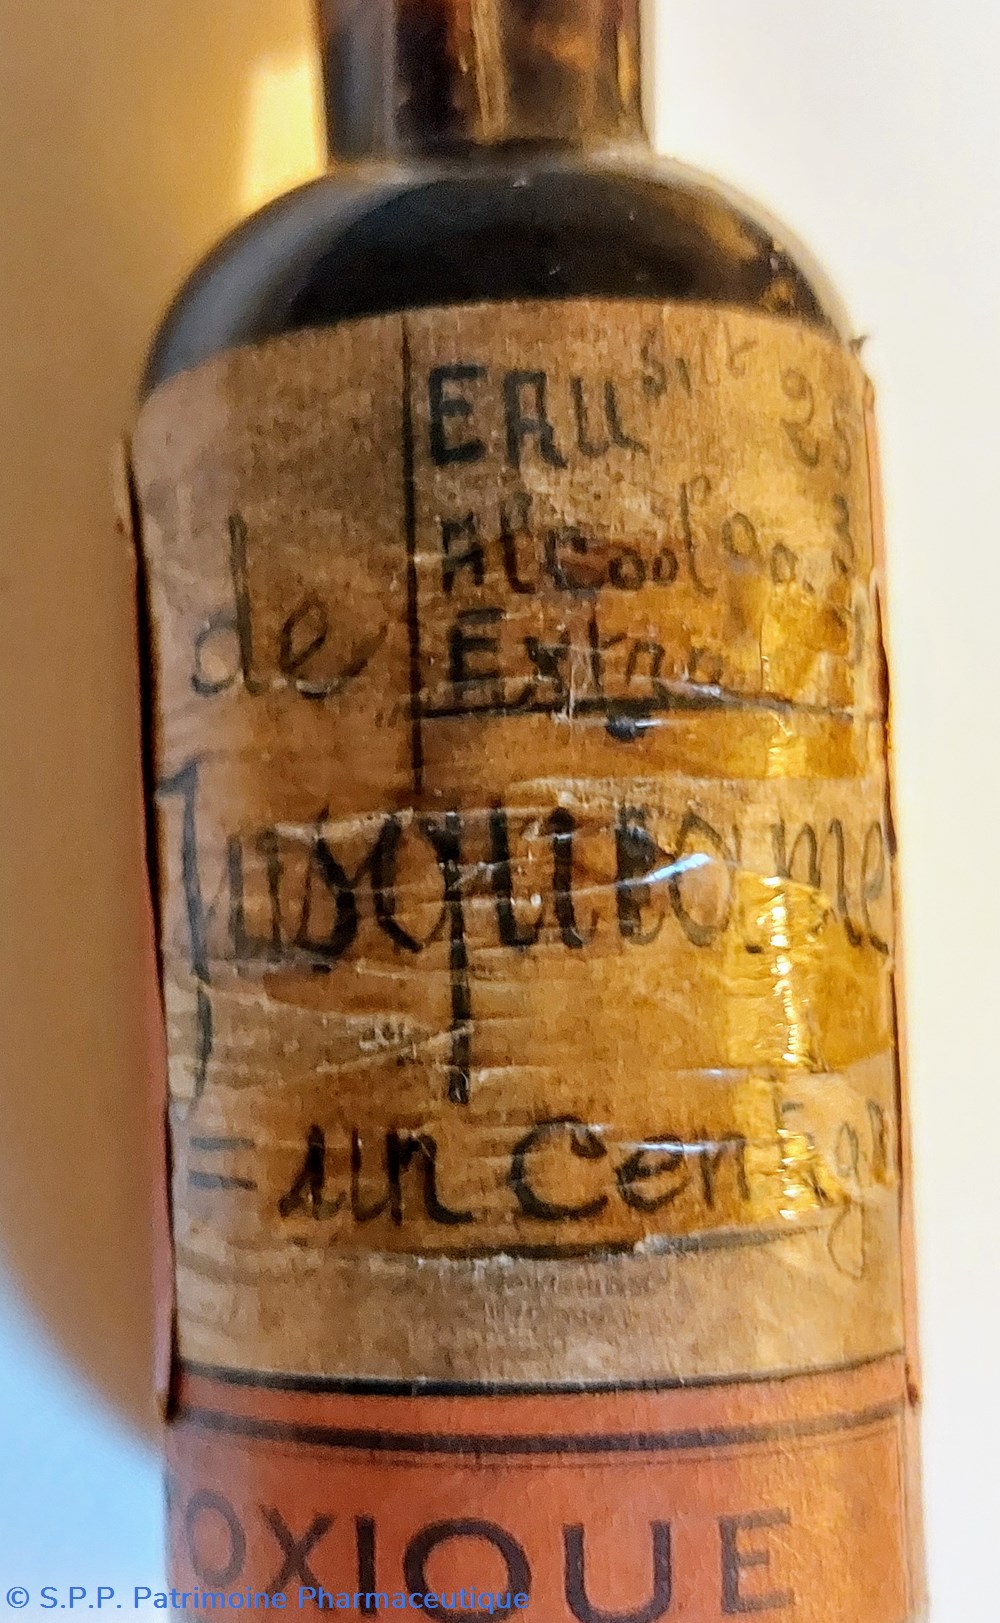 EAU 25
Alcool
Extra
de
Jusquiame
= un Centigr
OXIQUE
© S.P.P. Patrimoine Pharmaceutique